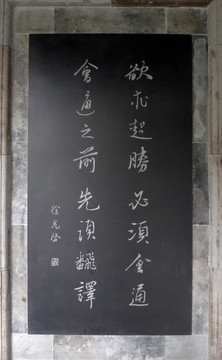 欲求超勝必須會通
會通之前先須飜譯
徐光啓